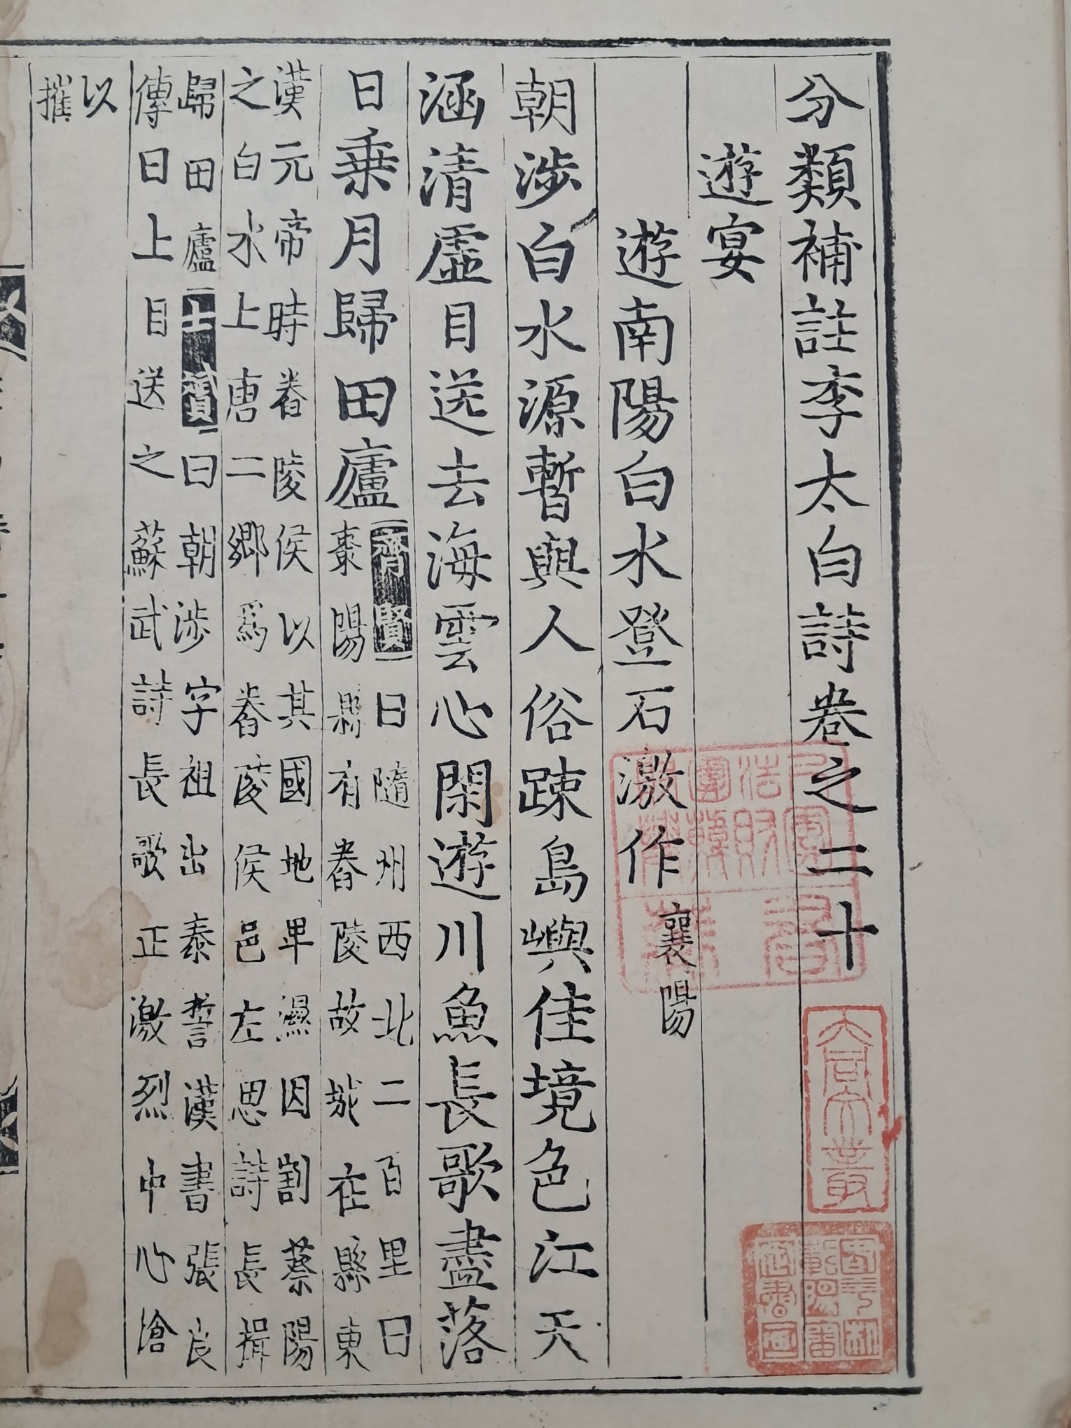 分類補註李太白詩卷之二十
遊宴
遊南陽白水登石激作襄陽
朝涉白水源暫與人俗踈島嶼佳境色江天
涵清虛目送去海雲心閑遊川魚長歌盡落
日乗月歸田廬
齊賢曰隨州西北二百里曰
棗陽縣有舂陵故城在縣東
漢元帝時舂陵侯以其國地卑濕因割蔡陽
之白水上唐二鄉爲舂陵侯邑左思詩長揖
歸田廬士贇曰朝涉字祖出泰誓漢書張良
傳曰上目送之蘇武詩長歌正激烈中心愴
以
摧